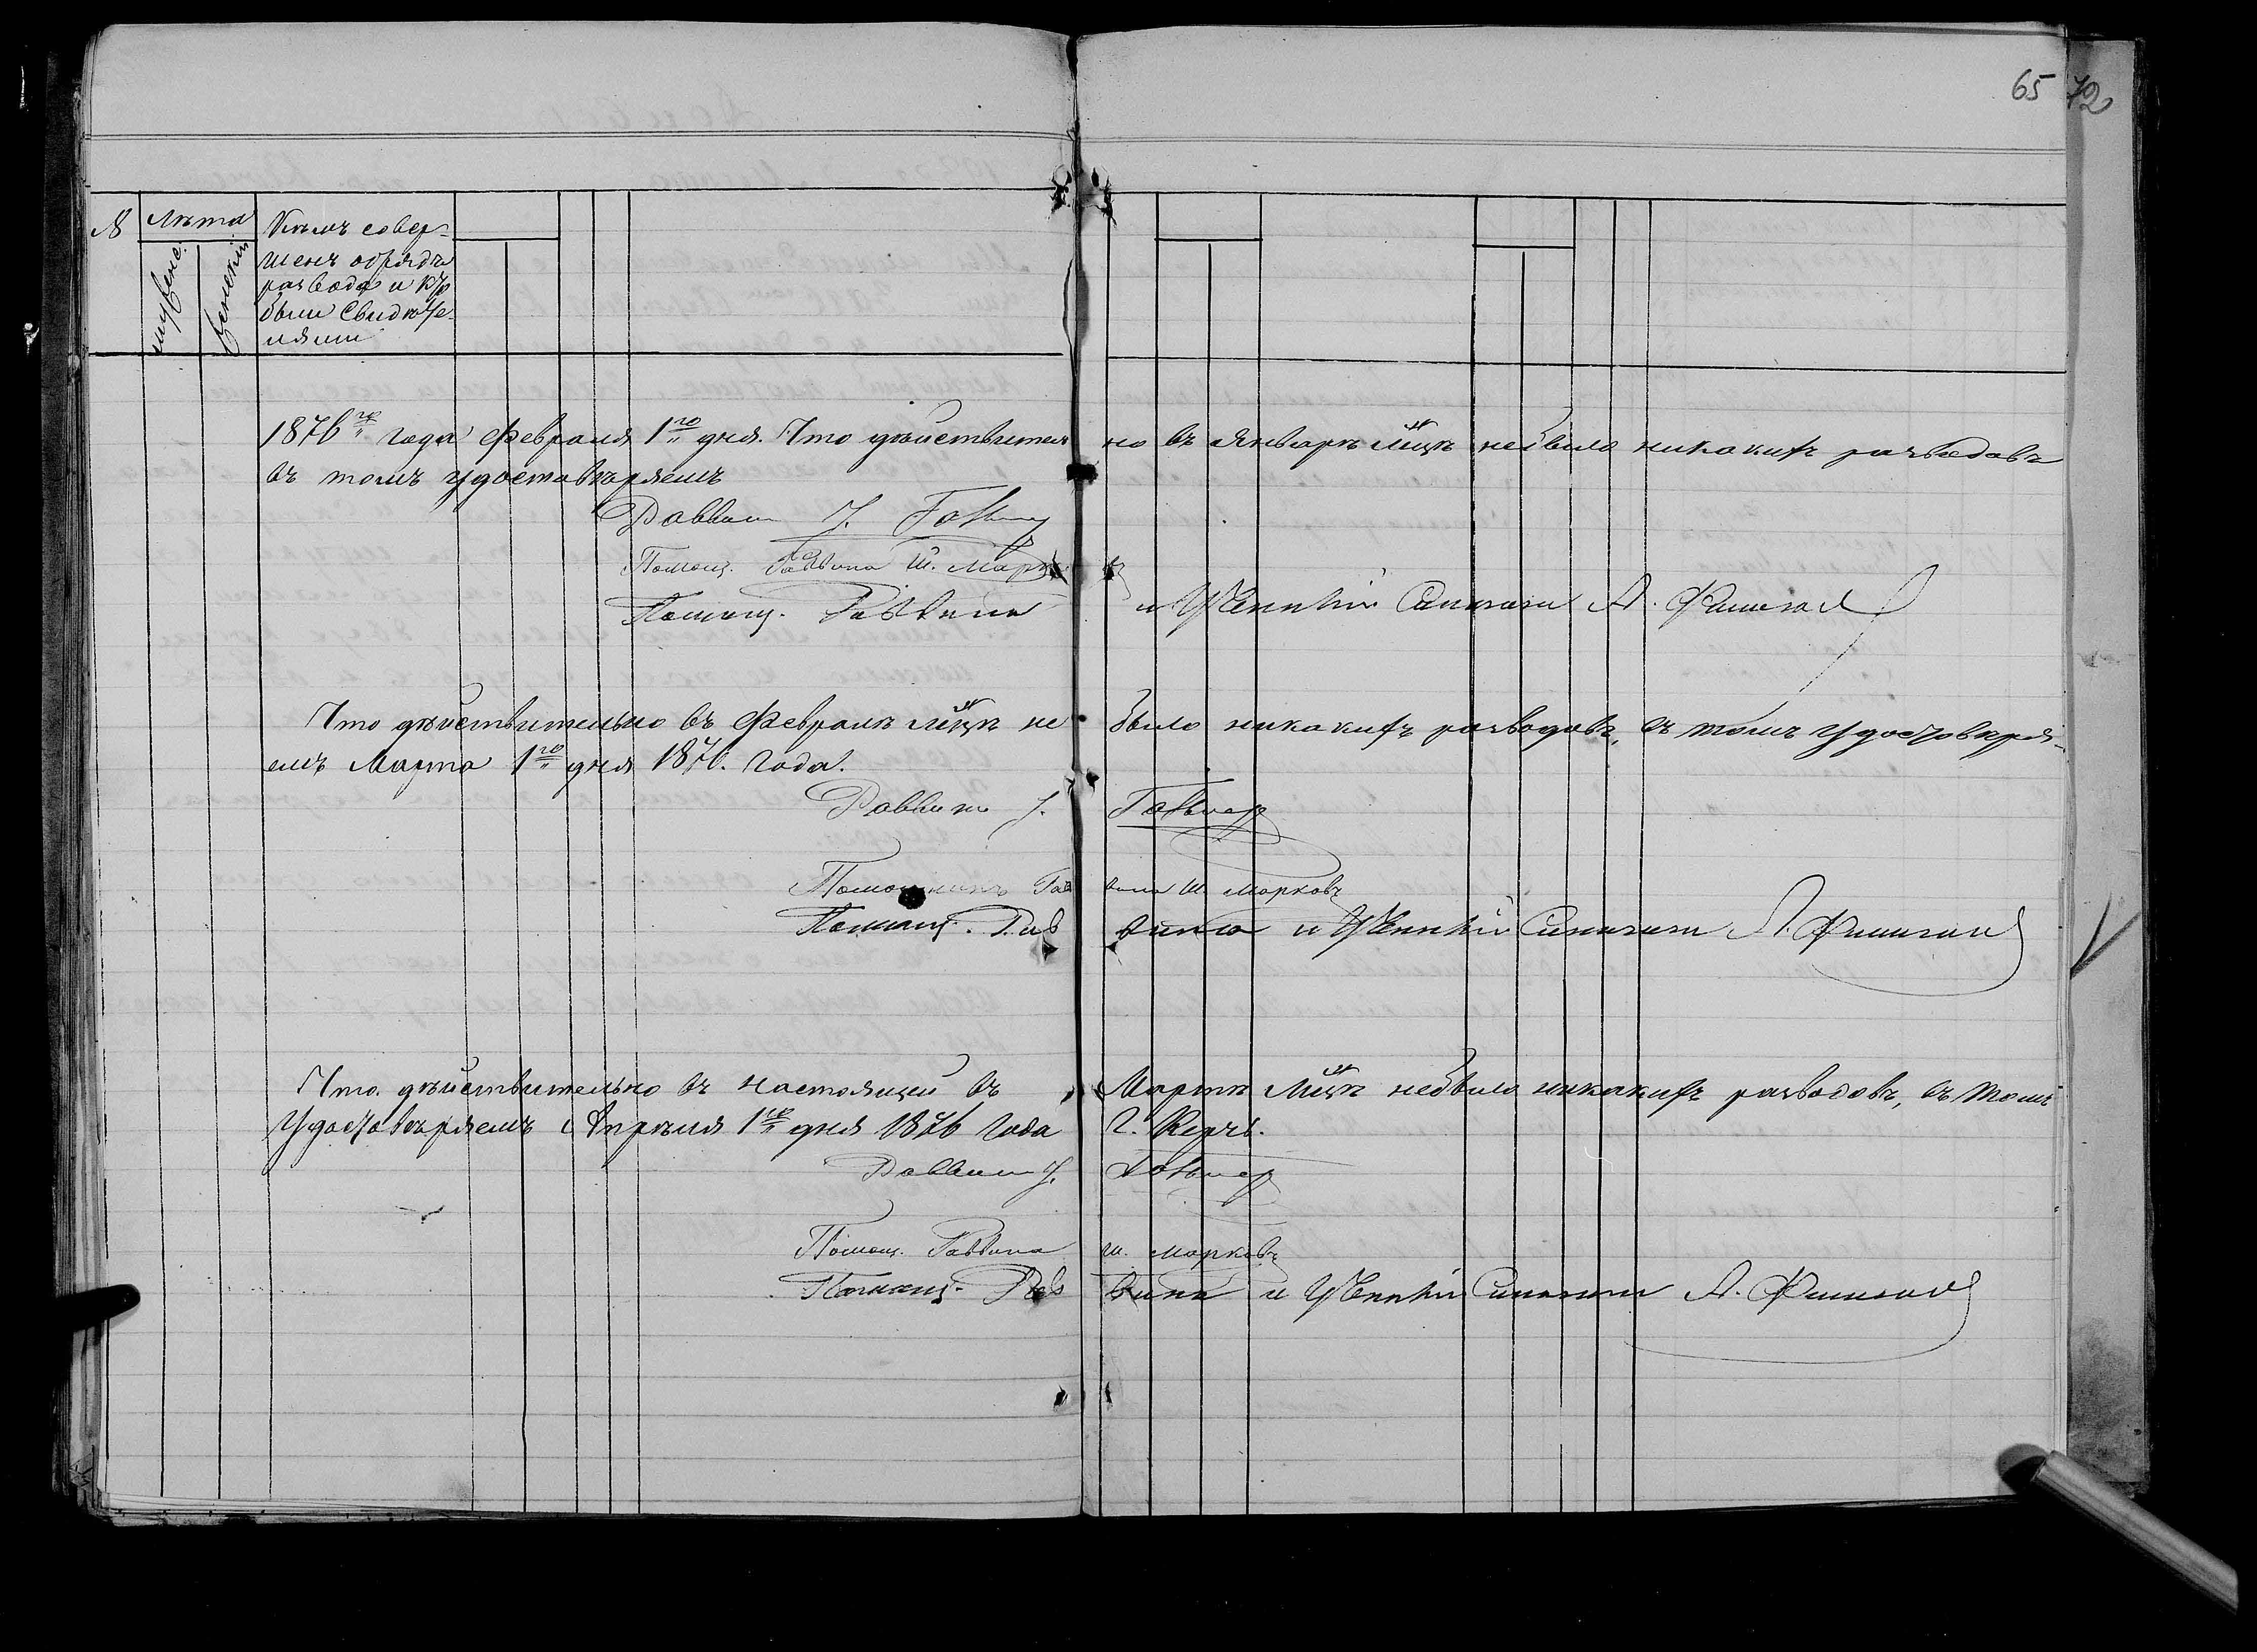 65 72
№
Лѣта
мужеск.
женскій
Кѣмъ совер-
шенъ обрядъ
развода и кто
были Свидѣте-
лями
1876го года Февраля 1го дня. Что дѣйствительно въ Январѣ м-цѣ небыло никакихъ разводовъ
въ томъ удостовѣряемъ
Раввинъ
Помощ. Раввина Ш. Марковъ
Помощ. Раввина и Ученый Синагоги А.
Что дѣйствительно въ Февралѣ м-цѣ не было никакихъ разводовъ, въ томъ удостовѣря-
емъ Марта 1го дня 1876. года.
Раввинъ
Помощникъ Раввина Ш. Марковъ
Помощ. Раввина и Синагоги А.
Что дѣйствительно въ настоящей въ Мартѣ м-цѣ небыло никакихъ разводовъ, въ томъ
удостовѣряемъ Апрѣля 1го дня 1876 года г. Керчь.
Раввинъ
Помощ. Раввина Ш. Марковъ
Помощ. Раввина и Синагоги А.